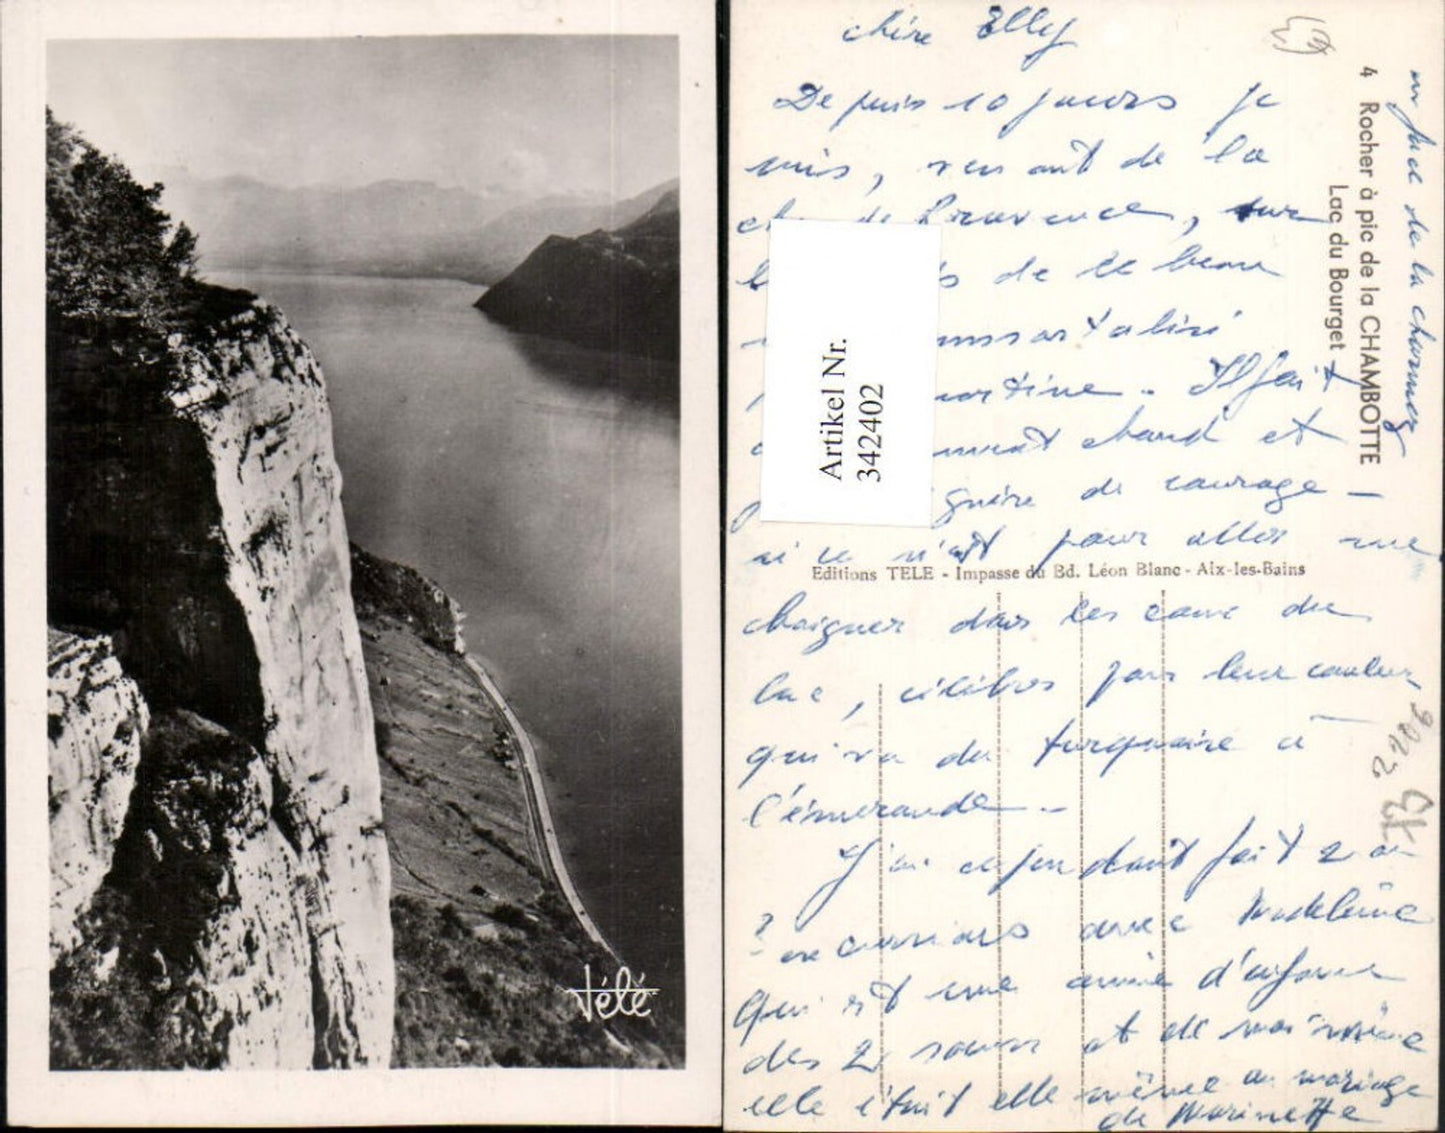 Télé
chère Elly
Depuis 10 jours je
suis, venant de la
de Provence, sur
de ce beau
immortalisé
martine. Il fait
chaud et
guère de courage -
si ce n'est pour aller me
baigner dans les eaux du
lac, célèbres par leur couleur
qui va du turquoise à
l'émeraude -
J'ai cependant fait 2 ou
3 excursions avec Madeleine
qui est une amie d'enfance
des 2 sœurs et de moi même
elle était elle même au mariage
de Marinette
de la
4 Rocher à pic de la CHAMBOTTE
Lac du Bourget
Artikel Nr.
342402
Editions TELE - Impasse du Bd. Léon Blanc - Aix-les-Bains